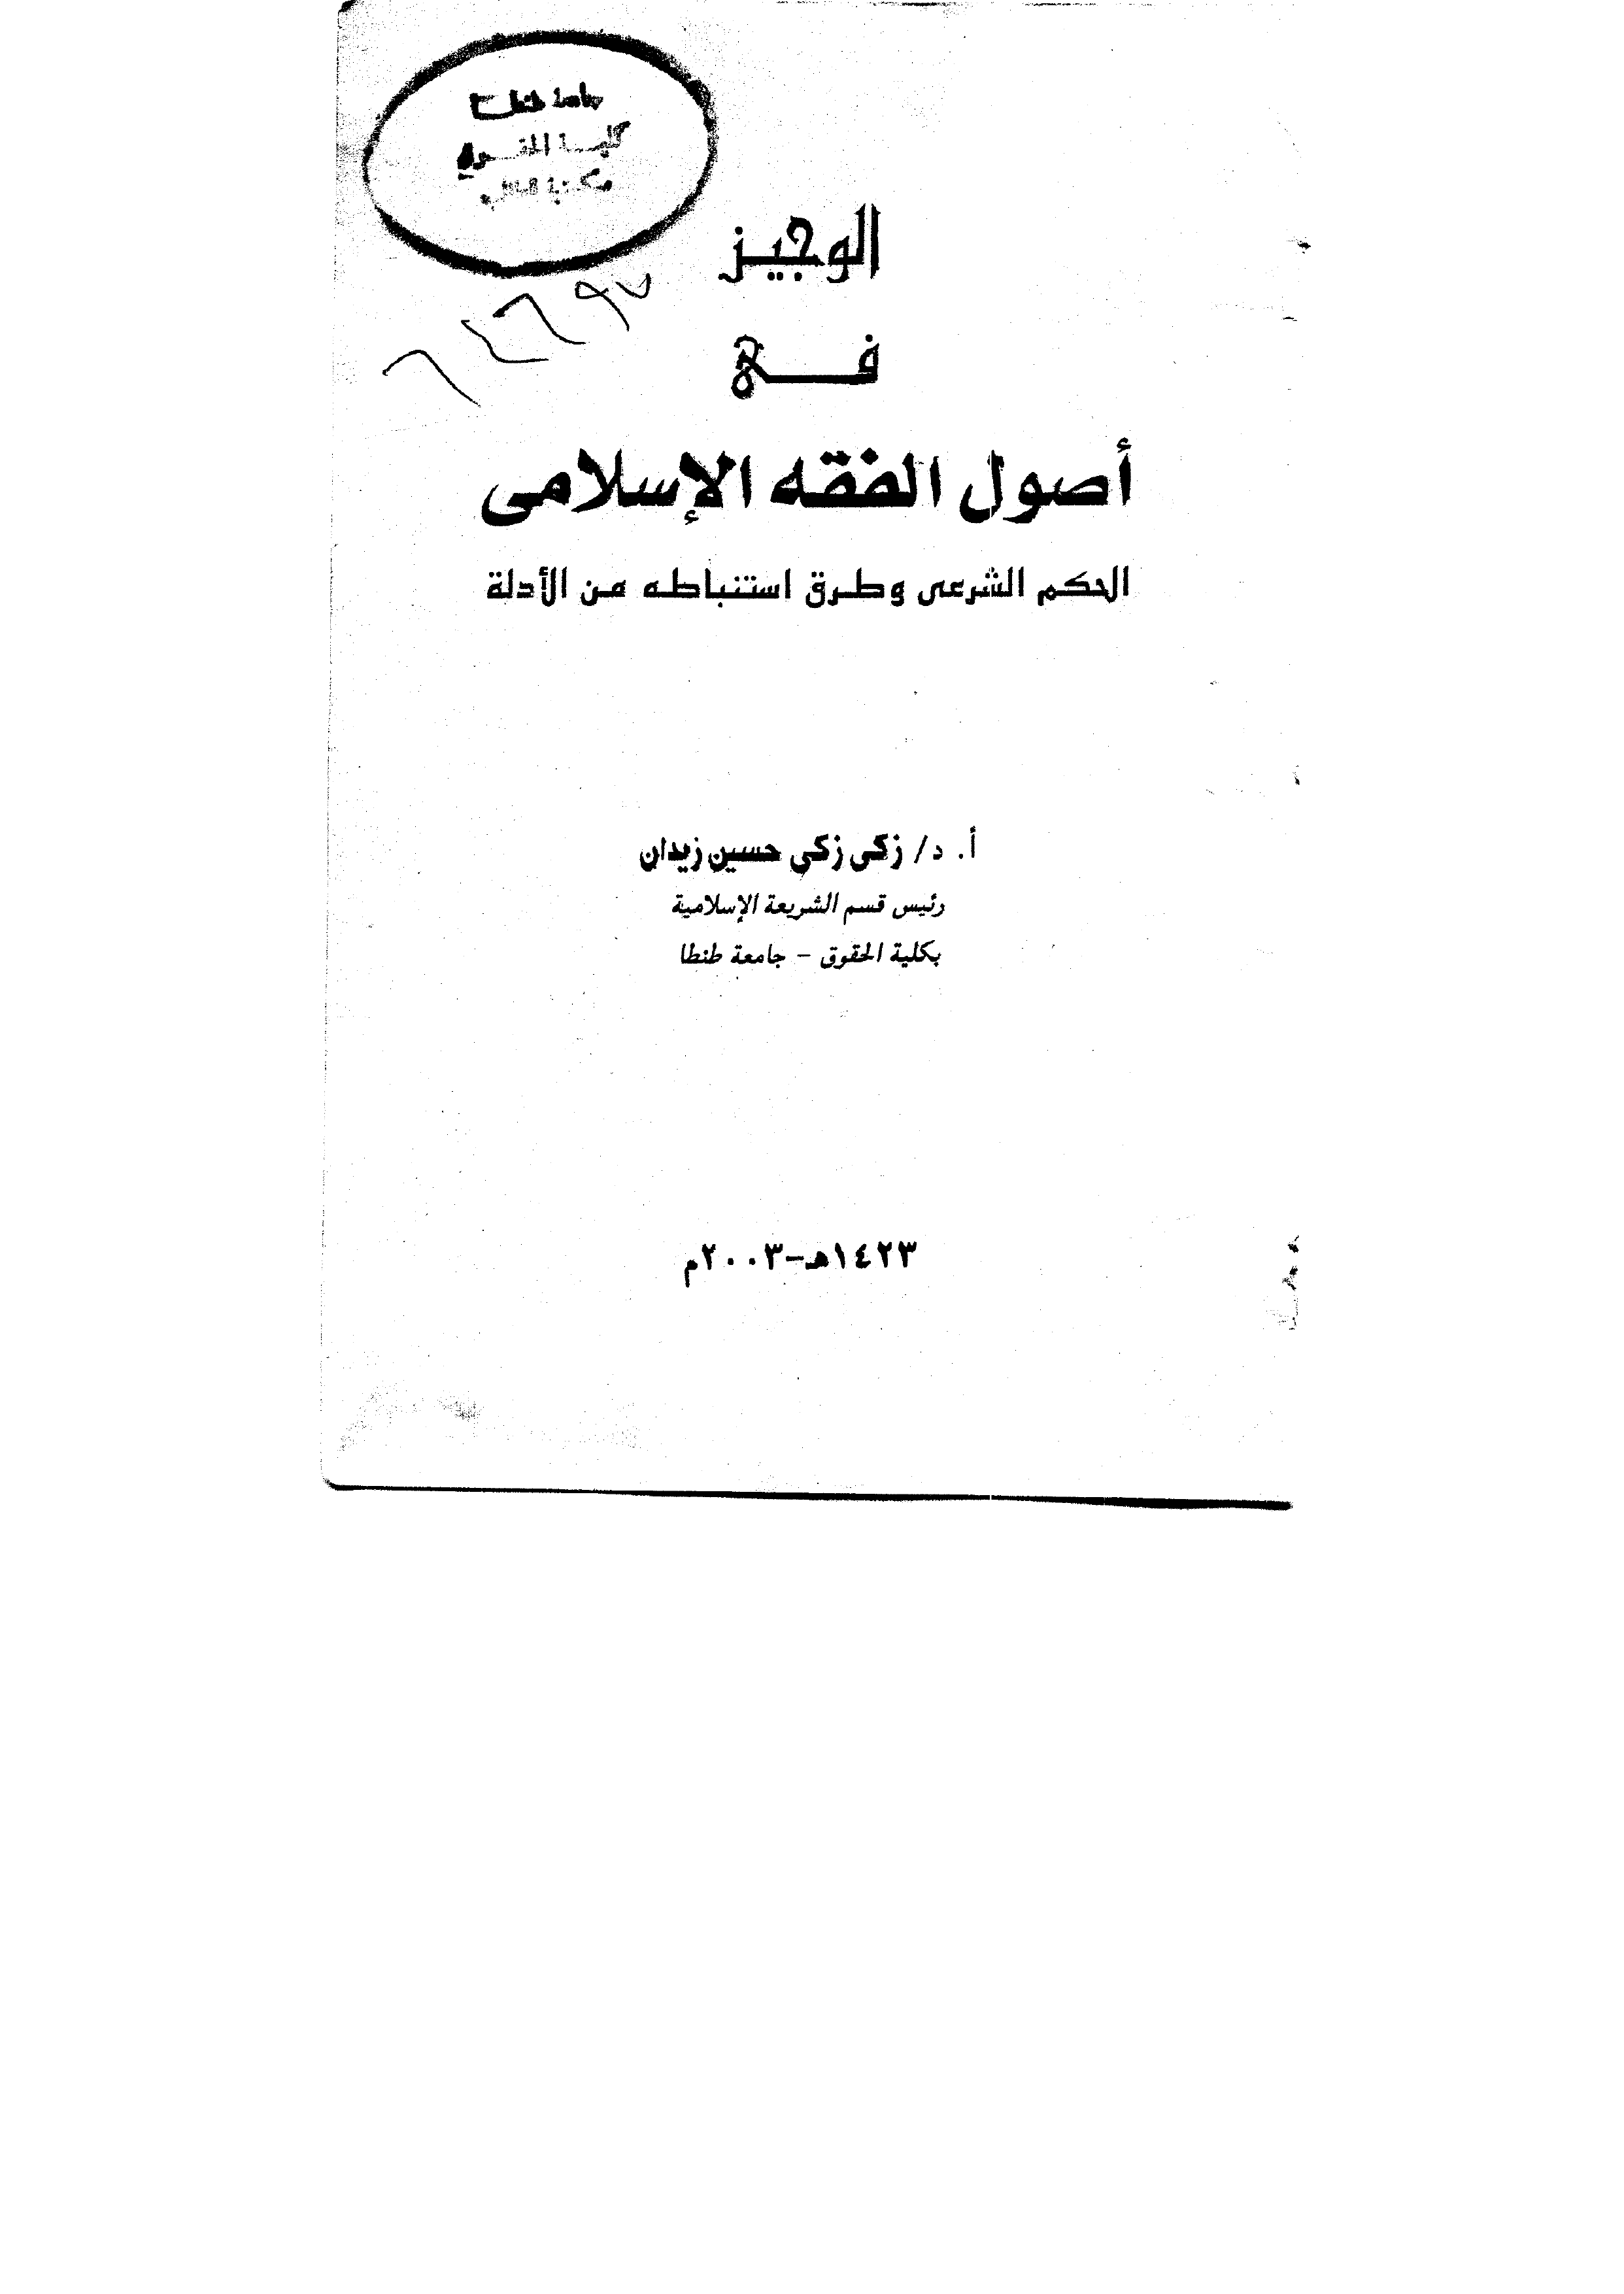 جامعة طنطا
كلية الحقوق
مكتبة
الوجيز
فى
أصول الفقه الإسلامى
الحكم الشرعى وطرق استنباطه من الأدلة
أ. د/ زكى زكى حسين زيدان
رئيس قسم الشريعة الإسلامية
بكلية الحقوق – جامعة طنطا
١٤٢٣هـ-٢٠٠٣م